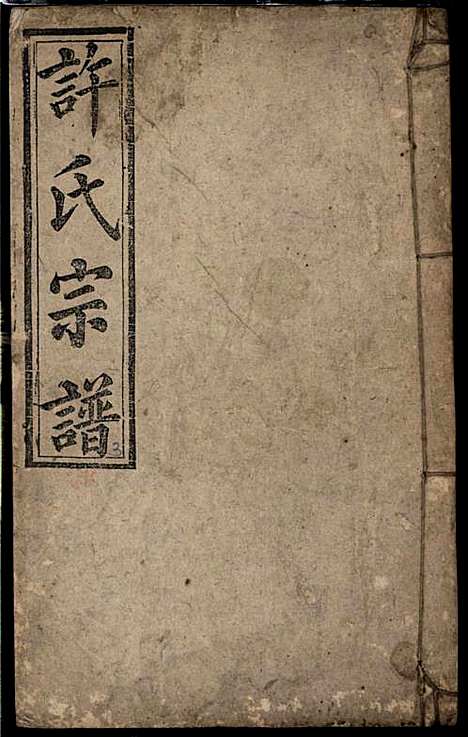 許氏宗譜
3